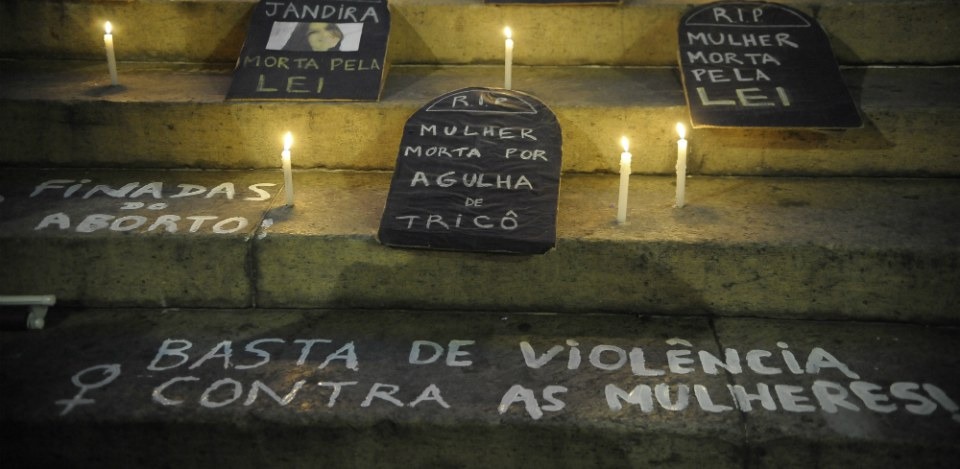 JANDIRA
MORTA PELA
LEI
R.I.P
MULHER
MORTA
PELA
LEI
R.I.P
MULHER
MORTA POR
AGULHA
DE
TRICÔ
FINADAS
DO
ABORTO!
BASTA DE VIOLÊNCIA
CONTRA AS MULHERES!